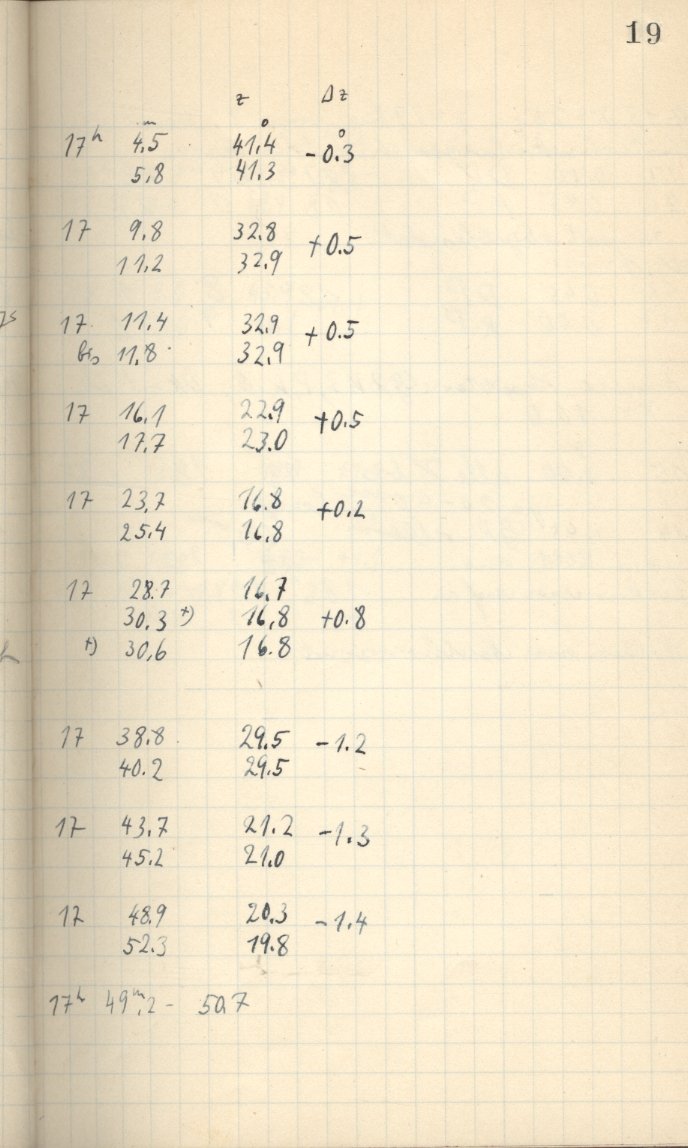 19
z Δz
17h 4,5m 41,4° -0.3°
5,8 41,3
17 9,8 32,8 +0.5
11,2 32,9
17 11,4 32,9 +0.5
bis 11,8 32,9
17 16,1 22,9 +0.5
17,7 23,0
17 23,7 16.8 +0.2
25,4 16,8
17 28.7 16,7
30.3 +) 16,8 +0.8
+) 30,6 16.8
17 38.8 29.5 -1.2
40.2 29.5
17 43,7 21.2 -1.3
45,2 21.0
17 48.9 20.3 -1.4
52.3 19.8
17h 49m,2 - 50,7